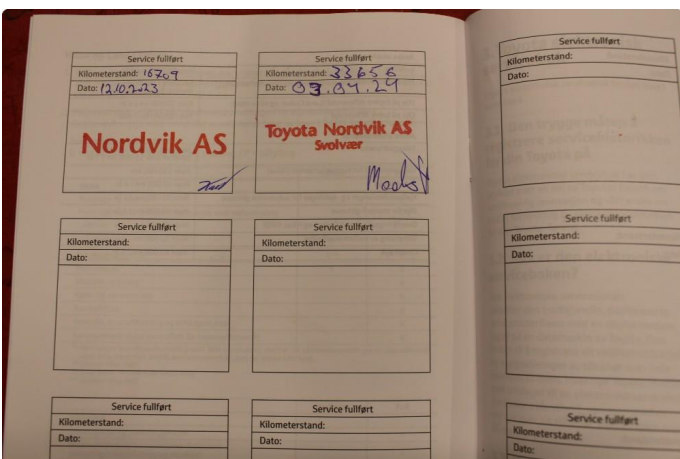 Service fullført
Kilometerstand: 16709
Dato: 12.10.2023
Nordvik AS
Service fullført
Kilometerstand: 33656
Dato: 03.04.24
Toyota Nordvik AS
Svolvær
Service fullført
Kilometerstand:
Dato:
Service fullført
Kilometerstand:
Dato:
Service fullført
Kilometerstand:
Dato:
Service fullført
Kilometerstand:
Dato:
Service fullført
Kilometerstand:
Dato:
Service fullført
Kilometerstand:
Dato:
Service fullført
Kilometerstand:
Dato: